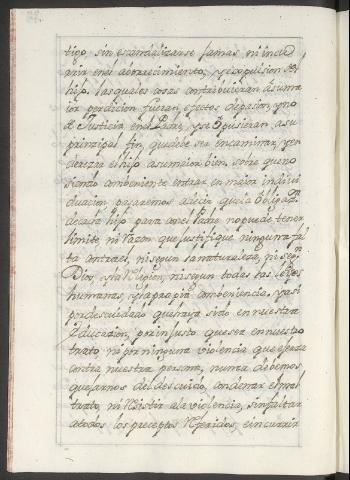 tigo sin escandalizarse jamas, ni incu
rrir en el aborrecimiento, y expulsion del
hijo. las quales cosas contribuieran à su ma
ior perdicion, fueran efectos de pasion, y no
de Justicia en el Padre, y se opusieran a su
principal fin, que debe ser encaminar, y en
derezar el hijo a su maior bien. sobre que no
siendo combeniente entrar en maior indivi
duacion, pasaremos à decir que la obligaz.n
de cada hijo para con el Padre no puede tener
limite ni razon que justifique ninguna fal
ta contra el, ni segun la naturaleza, ni seg.n
Dios, y la Religion, ni segun todas las Leyes
humanas, y la propia combeniencia. y asi
por descuidado que haya sido en nuestra
Educazion, por injusto que sea en nuestro
trato, ni por ninguna violencia que exerza
contra nuestra persona, nunca debemos
quejarnos del descuido, condenar el mal
trato, ni resistir a la violencia, sin faltar
a todos los preceptos referidos, e incurrir